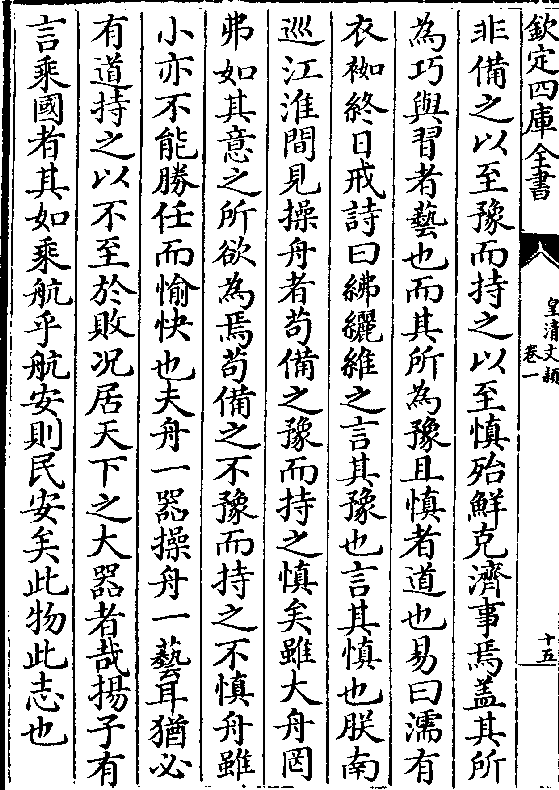 欽定四庫全書
皇清文穎
卷一
十五
非備之以至豫而持之以至慎殆鮮克濟事焉蓋其所
為巧與習者藝也而其所為豫且慎者道也易曰濡有
衣袽終日戒詩曰紼纚維之言其豫也言其慎也朕南
巡江淮間見操舟者苟備之豫而持之慎矣雖大舟罔
弗如其意之所欲為焉苟備之不豫而持之不慎舟雖
小亦不能勝任而愉快也夫舟一器操舟一藝耳猶必
有道持之以不至於敗况居天下之大器者哉揚子有
言乘國者其如乘航乎航安則民安矣此物此志也